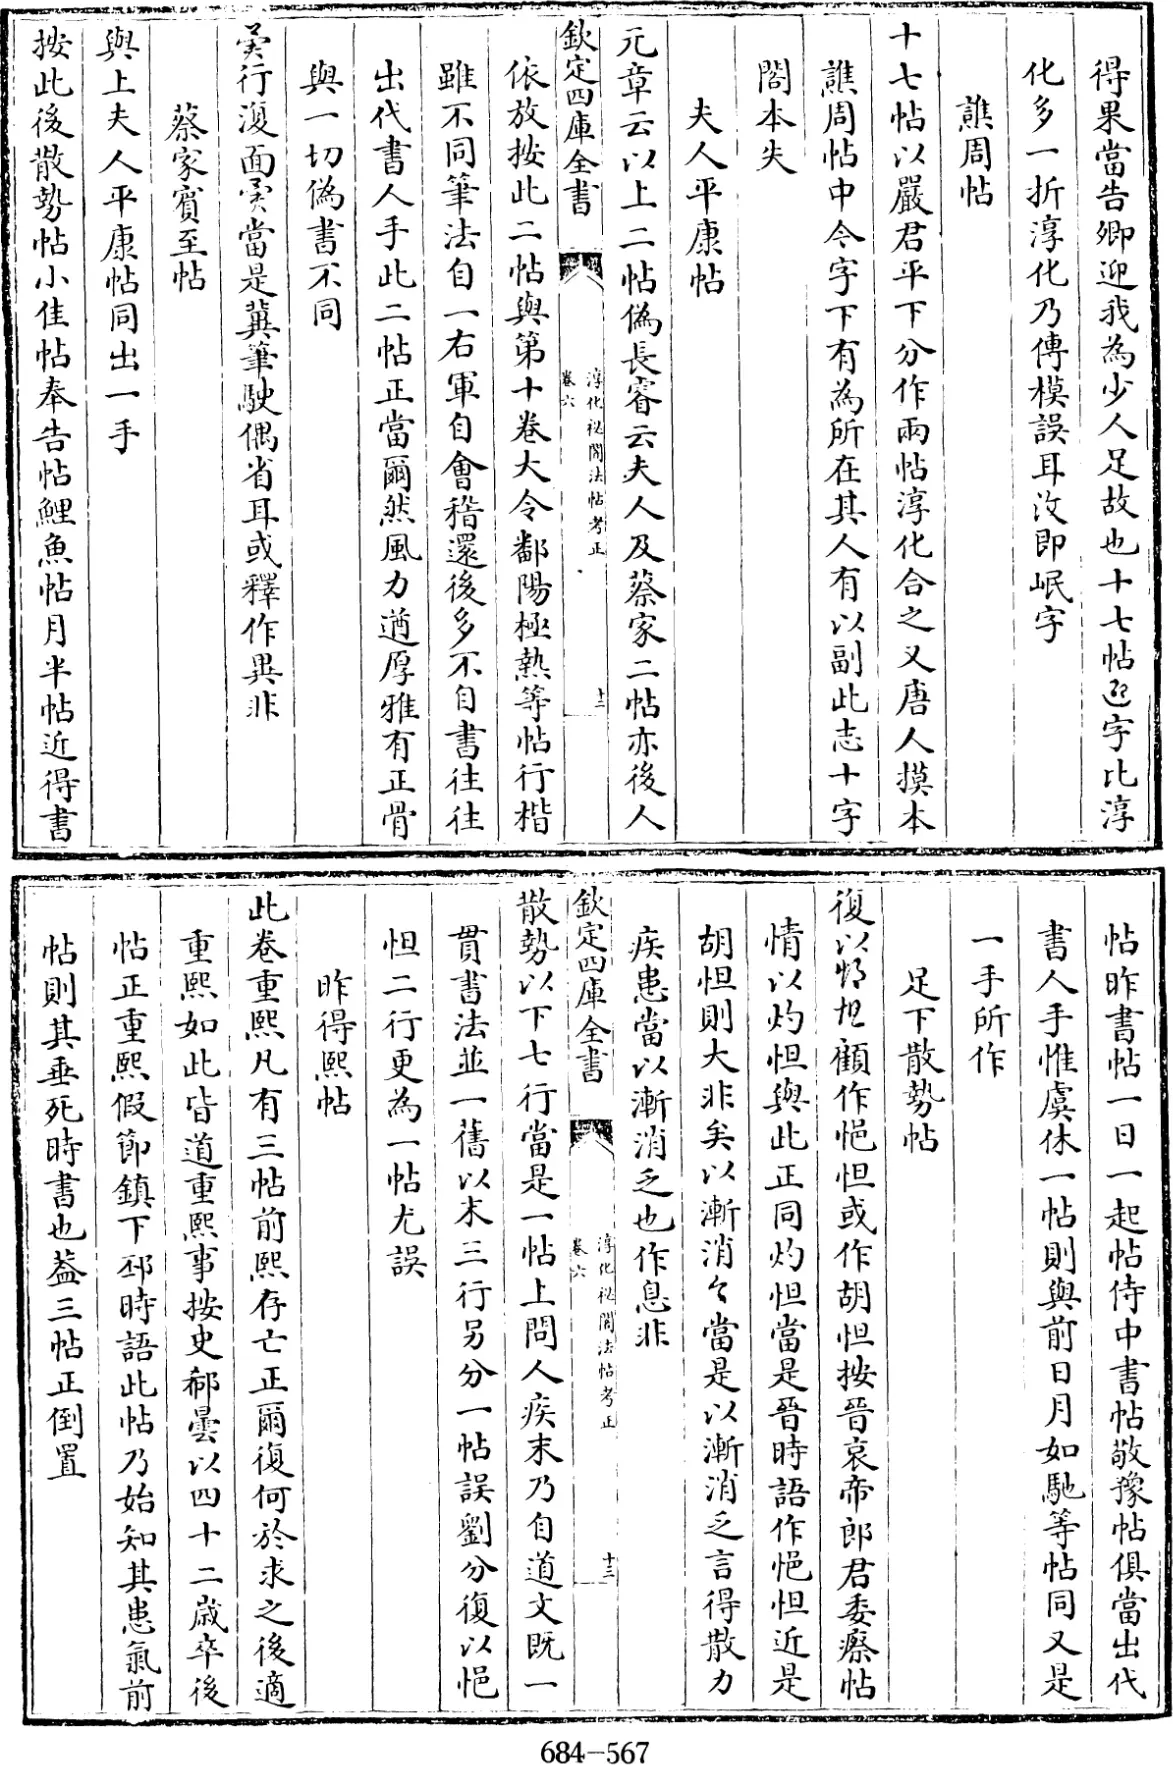 得果當告卿迎我為少人足故也十七帖迎字比淳
化多一折淳化乃傳模誤耳汶即岷字
譙周帖
十七帖以嚴君平下分作兩帖淳化合之又唐人摸本
譙周帖中令字下有為所在其人有以副此志十字
閣本失
夫人平康帖
元章云以上二帖偽長睿云夫人及蔡家二帖亦後人
欽定四庫全書
淳化秘閣法帖考正
卷六
十二
依放按此二帖與第十卷大令鄱陽極熱等帖行楷
雖不同筆法自一右軍自會稽還後多不自書往往
出代書人手此二帖正當爾然風力遒厚雅有正骨
與一切偽書不同
行復面當是冀筆駛偶省耳或釋作異非
蔡家賓至帖
與上夫人平康帖同出一手
按此後散勢帖小佳帖奉告帖鯉魚帖月半帖近得書
帖昨書帖一日一起帖侍中書帖敬豫帖俱當出代
書人手惟虞休一帖則與前日月如馳等帖同又是
一手所作
足下散勢帖
復以顧作悒怛或作胡怛按晉哀帝郎君委瘵帖
情以灼怛與此正同灼怛當是晉時語作悒怛近是
胡怛則大非矣以漸消當是以漸消乏言得散力
疾患當以漸消乏也作息非
欽定四庫全書
淳化秘閣法帖考正
卷六
十三
散勢以下七行當是一帖上問人疾末乃自道文既一
貫書法並一舊以末三行另分一帖誤劉分復以悒
怛二行更為一帖尤誤
昨得熙帖
此卷重熙凡有三帖前熙存亡正爾復何於求之後適
重熙如此皆道重熙事按史郗曇以四十二歲卒後
帖正重熙假節鎮下邳時語此帖乃始知其患氣前
帖則其垂死時書也葢三帖正倒置
684-567